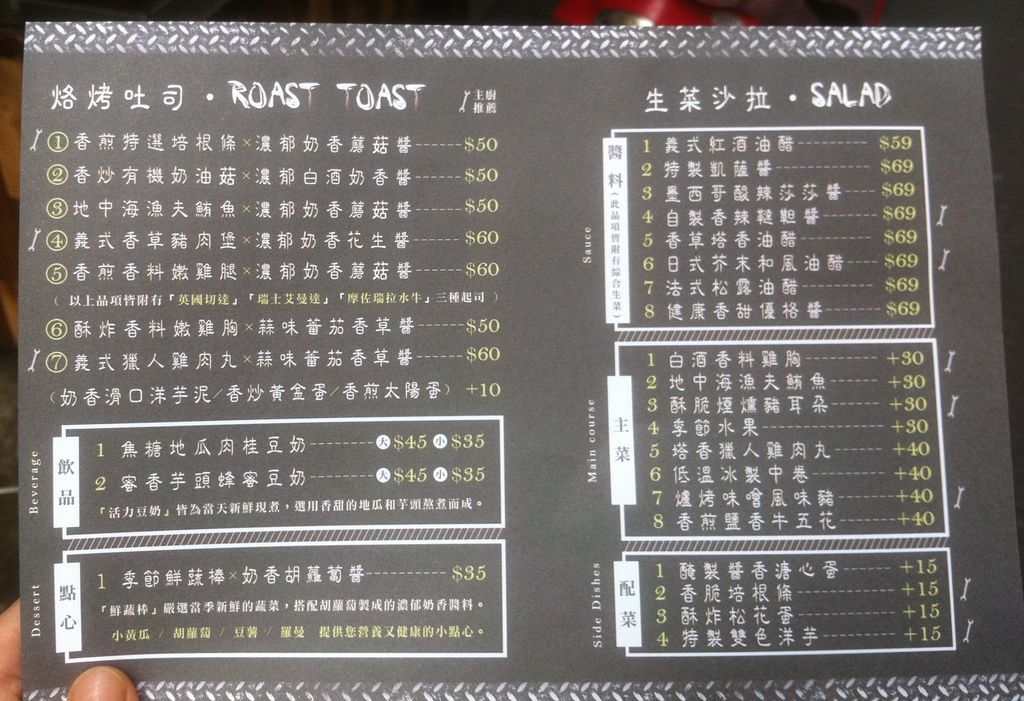 烙烤吐司・ROAST TOAST 主廚推薦
① 香煎特選培根條×濃郁奶香蘑菇醬------$50
② 香炒有機奶油菇×濃郁白酒奶香醬------$50
③ 地中海漁夫鮪魚×濃郁奶香蘑菇醬------$50
④ 義式香草豬肉堡×濃郁奶香花生醬------$60
⑤ 香煎香料嫩雞腿×濃郁奶香蘑菇醬------$60
(以上品項皆附有「英國切達」「瑞士艾曼達」「摩佐瑞拉水牛」三種起司)
⑥ 酥炸香料嫩雞胸×蒜味蕃茄香草醬------$50
⑦ 義式獵人雞肉丸×蒜味蕃茄香草醬------$60
(奶香滑口洋芋泥/香炒黃金蛋/香煎太陽蛋) +10
Beverage
飲品
1 焦糖地瓜肉桂豆奶--------大$45 小$35
2 蜜香芋頭蜂蜜豆奶--------大$45 小$35
「活力豆奶」皆為當天新鮮現煮，選用香甜的地瓜和芋頭熬煮而成。
Dessert
點心
1 季節鮮蔬棒×奶香胡蘿蔔醬-----------$35
「鮮蔬棒」嚴選當季新鮮的蔬菜，搭配胡蘿蔔製成的濃郁奶香醬料。
小黃瓜 / 胡蘿蔔 / 豆薯 / 羅曼 提供您營養又健康的小點心。
生菜沙拉・SALAD
Sauce
醬料(此品項皆附有綜合生菜)
1 義式紅酒油醋---------$59
2 特製凱薩醬-----------$69
3 墨西哥酸辣莎莎醬----$69
4 自製香辣韃靼醬------$69
5 香草塔香油醋---------$69
6 日式芥末和風油醋---$69
7 法式松露油醋---------$69
8 健康香甜優格醬------$69
Main course
主菜
1 白酒香料雞胸---------+30
2 地中海漁夫鮪魚------+30
3 酥脆煙燻豬耳朵------+30
4 季節水果--------------+30
5 塔香獵人雞肉丸------+40
6 低溫冰製中卷---------+40
7 爐烤味噌風味豬------+40
8 香煎鹽香牛五花------+40
Side Dishes
配菜
1 醃製醬香溏心蛋------+15
2 香脆培根條-----------+15
3 酥炸松花蛋-----------+15
4 特製雙色洋芋---------+15